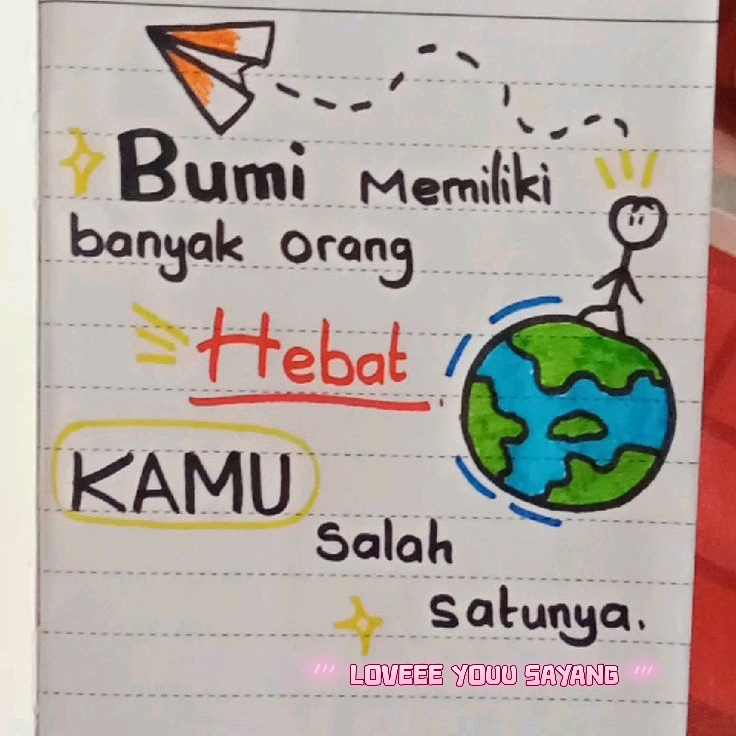 Bumi Memiliki
banyak orang
Hebat
KAMU
Salah
satunya.
LOVEEE YOUU SAYANG